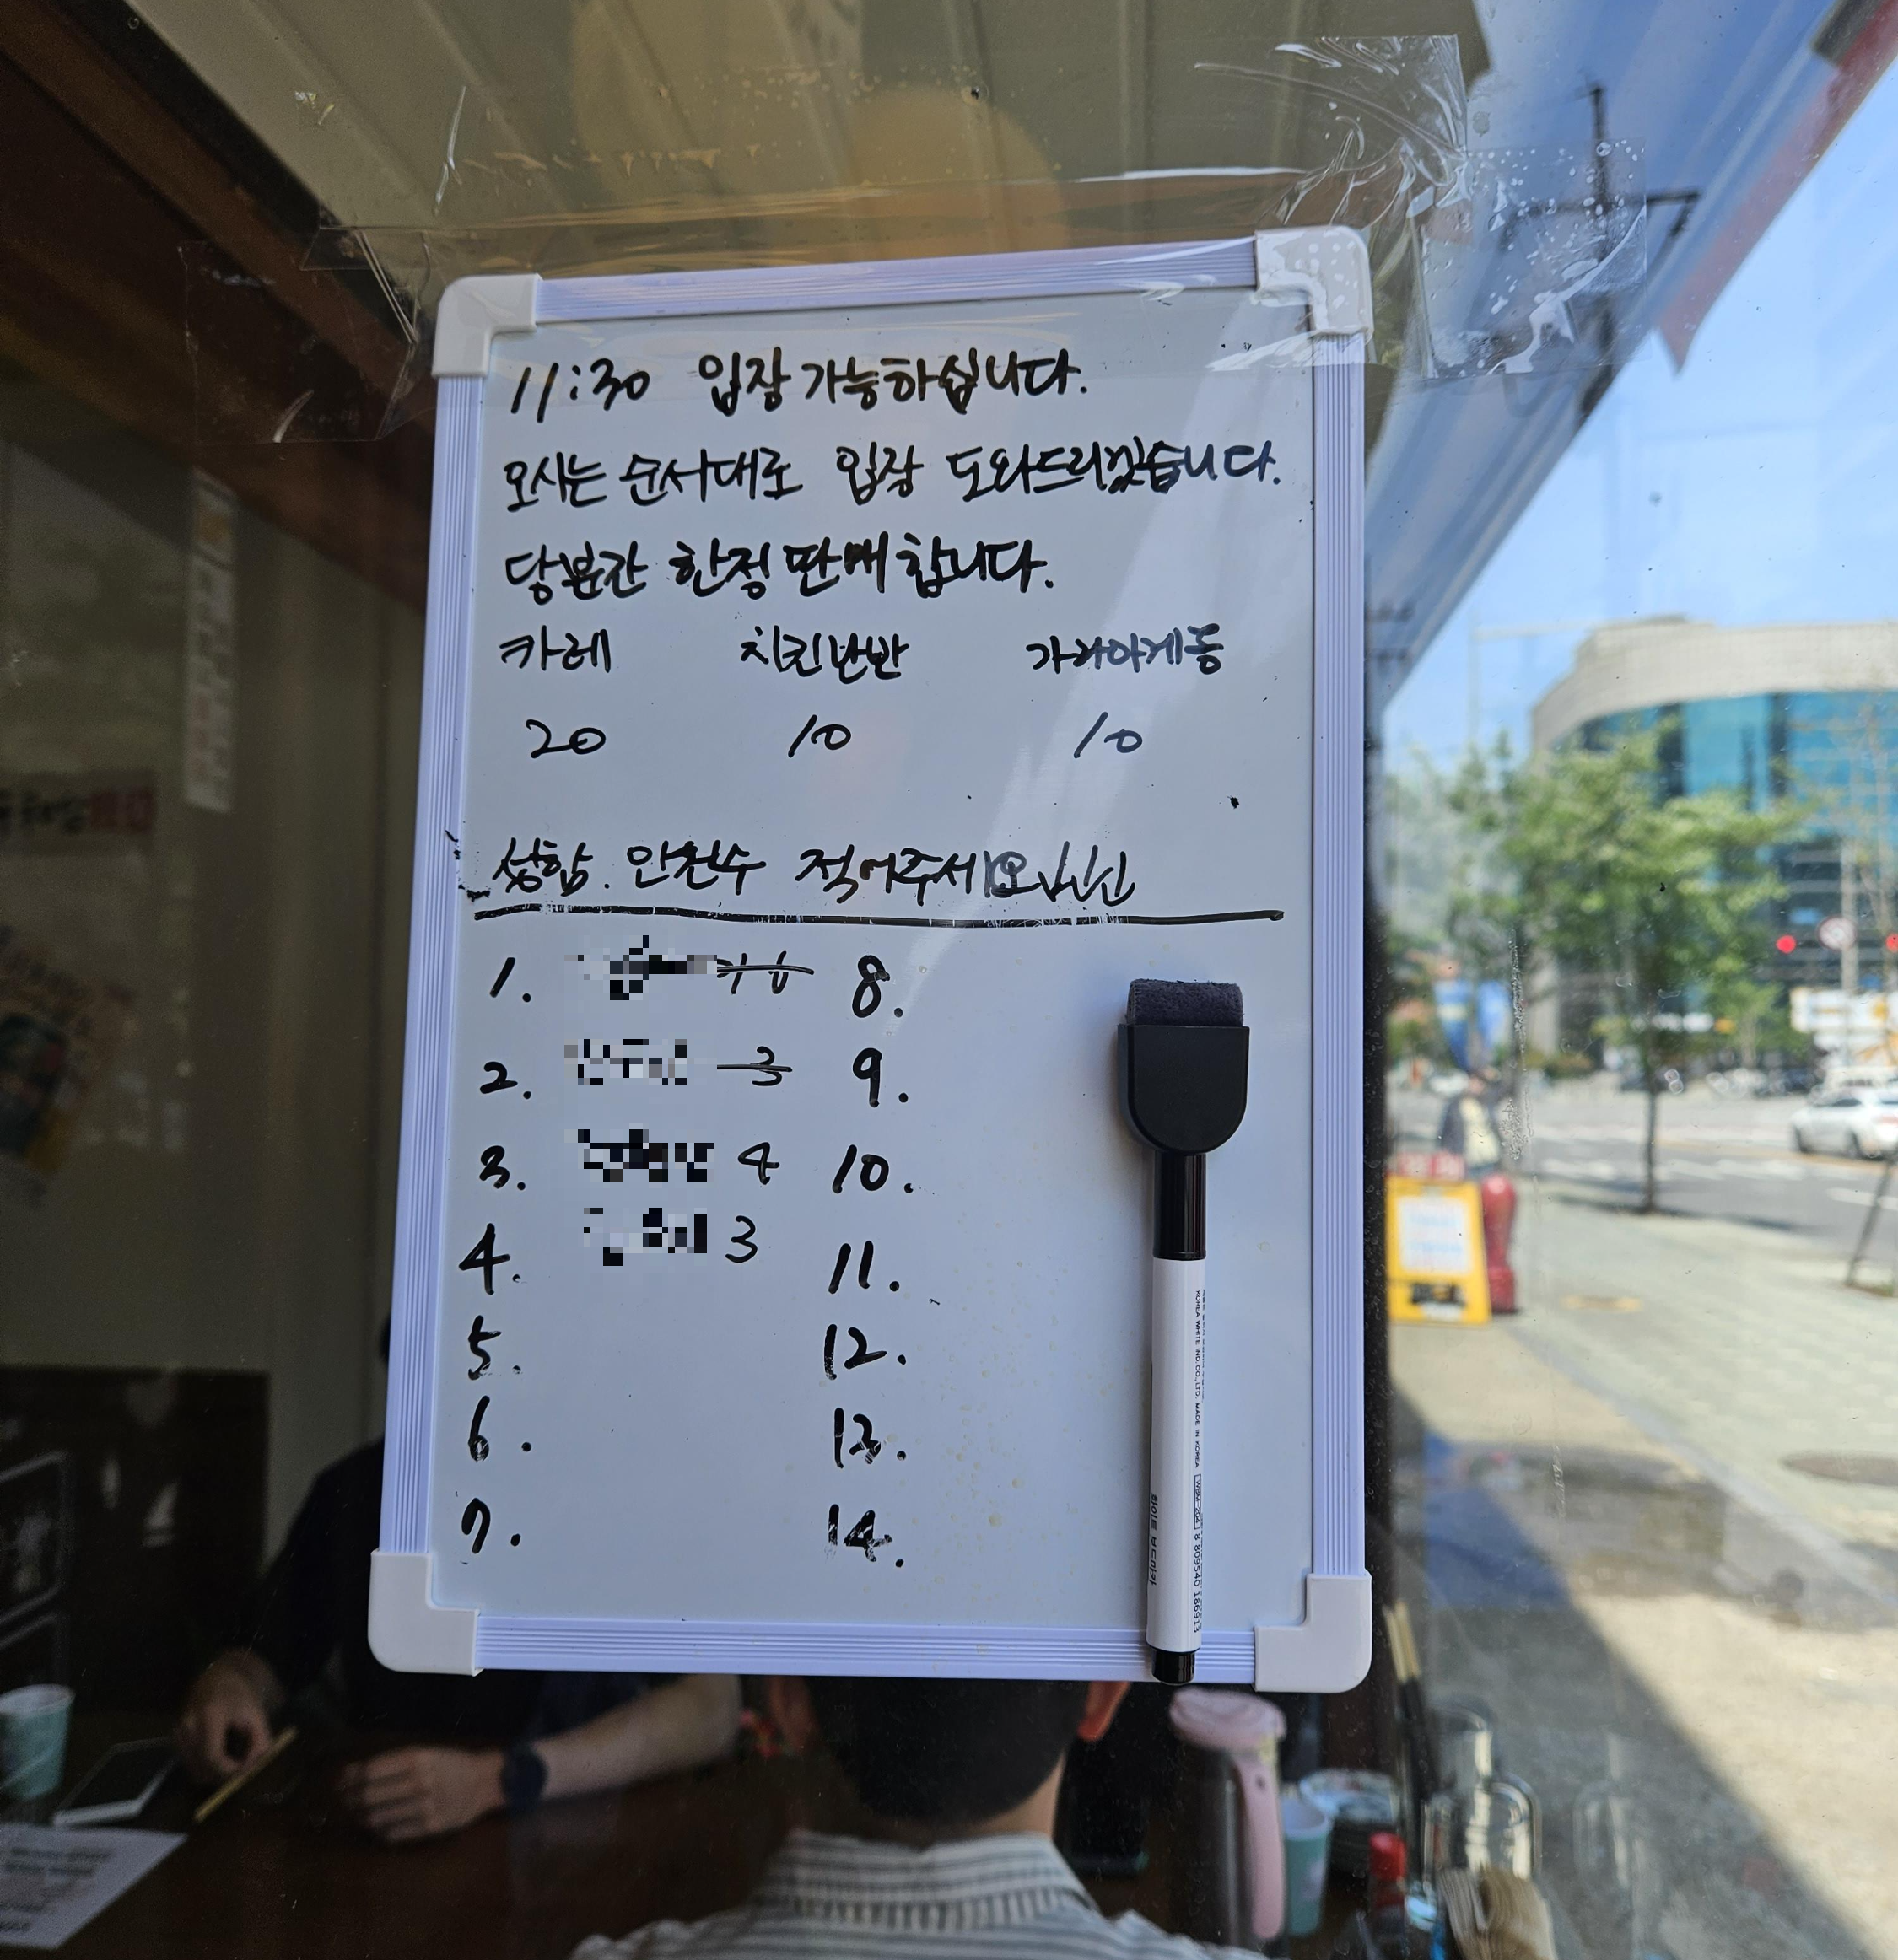 11:30 입장 가능하십니다.
오시는 순서대로 입장 도와드리겠습니다.
당분간 한정 판매 합니다.
카레 치킨난반 가라아게동
20 10 10
성함. 인원수 적어주세요
1. 8.
2. 3 9.
3. 4 10.
4. 3 11.
5. 12.
6. 13.
7. 14.
KOREA WHITE IND. CO., LTD. MADE IN KOREA 8 809540 186913
화이트 보드마카